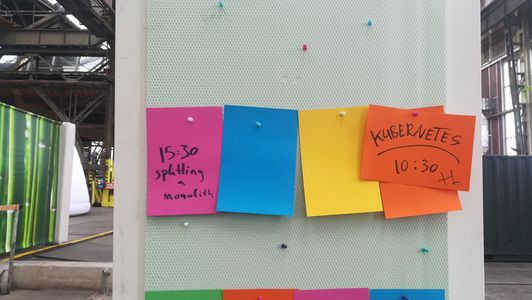 15:30
splitting
a
monolith
KUBERNETES
10:30